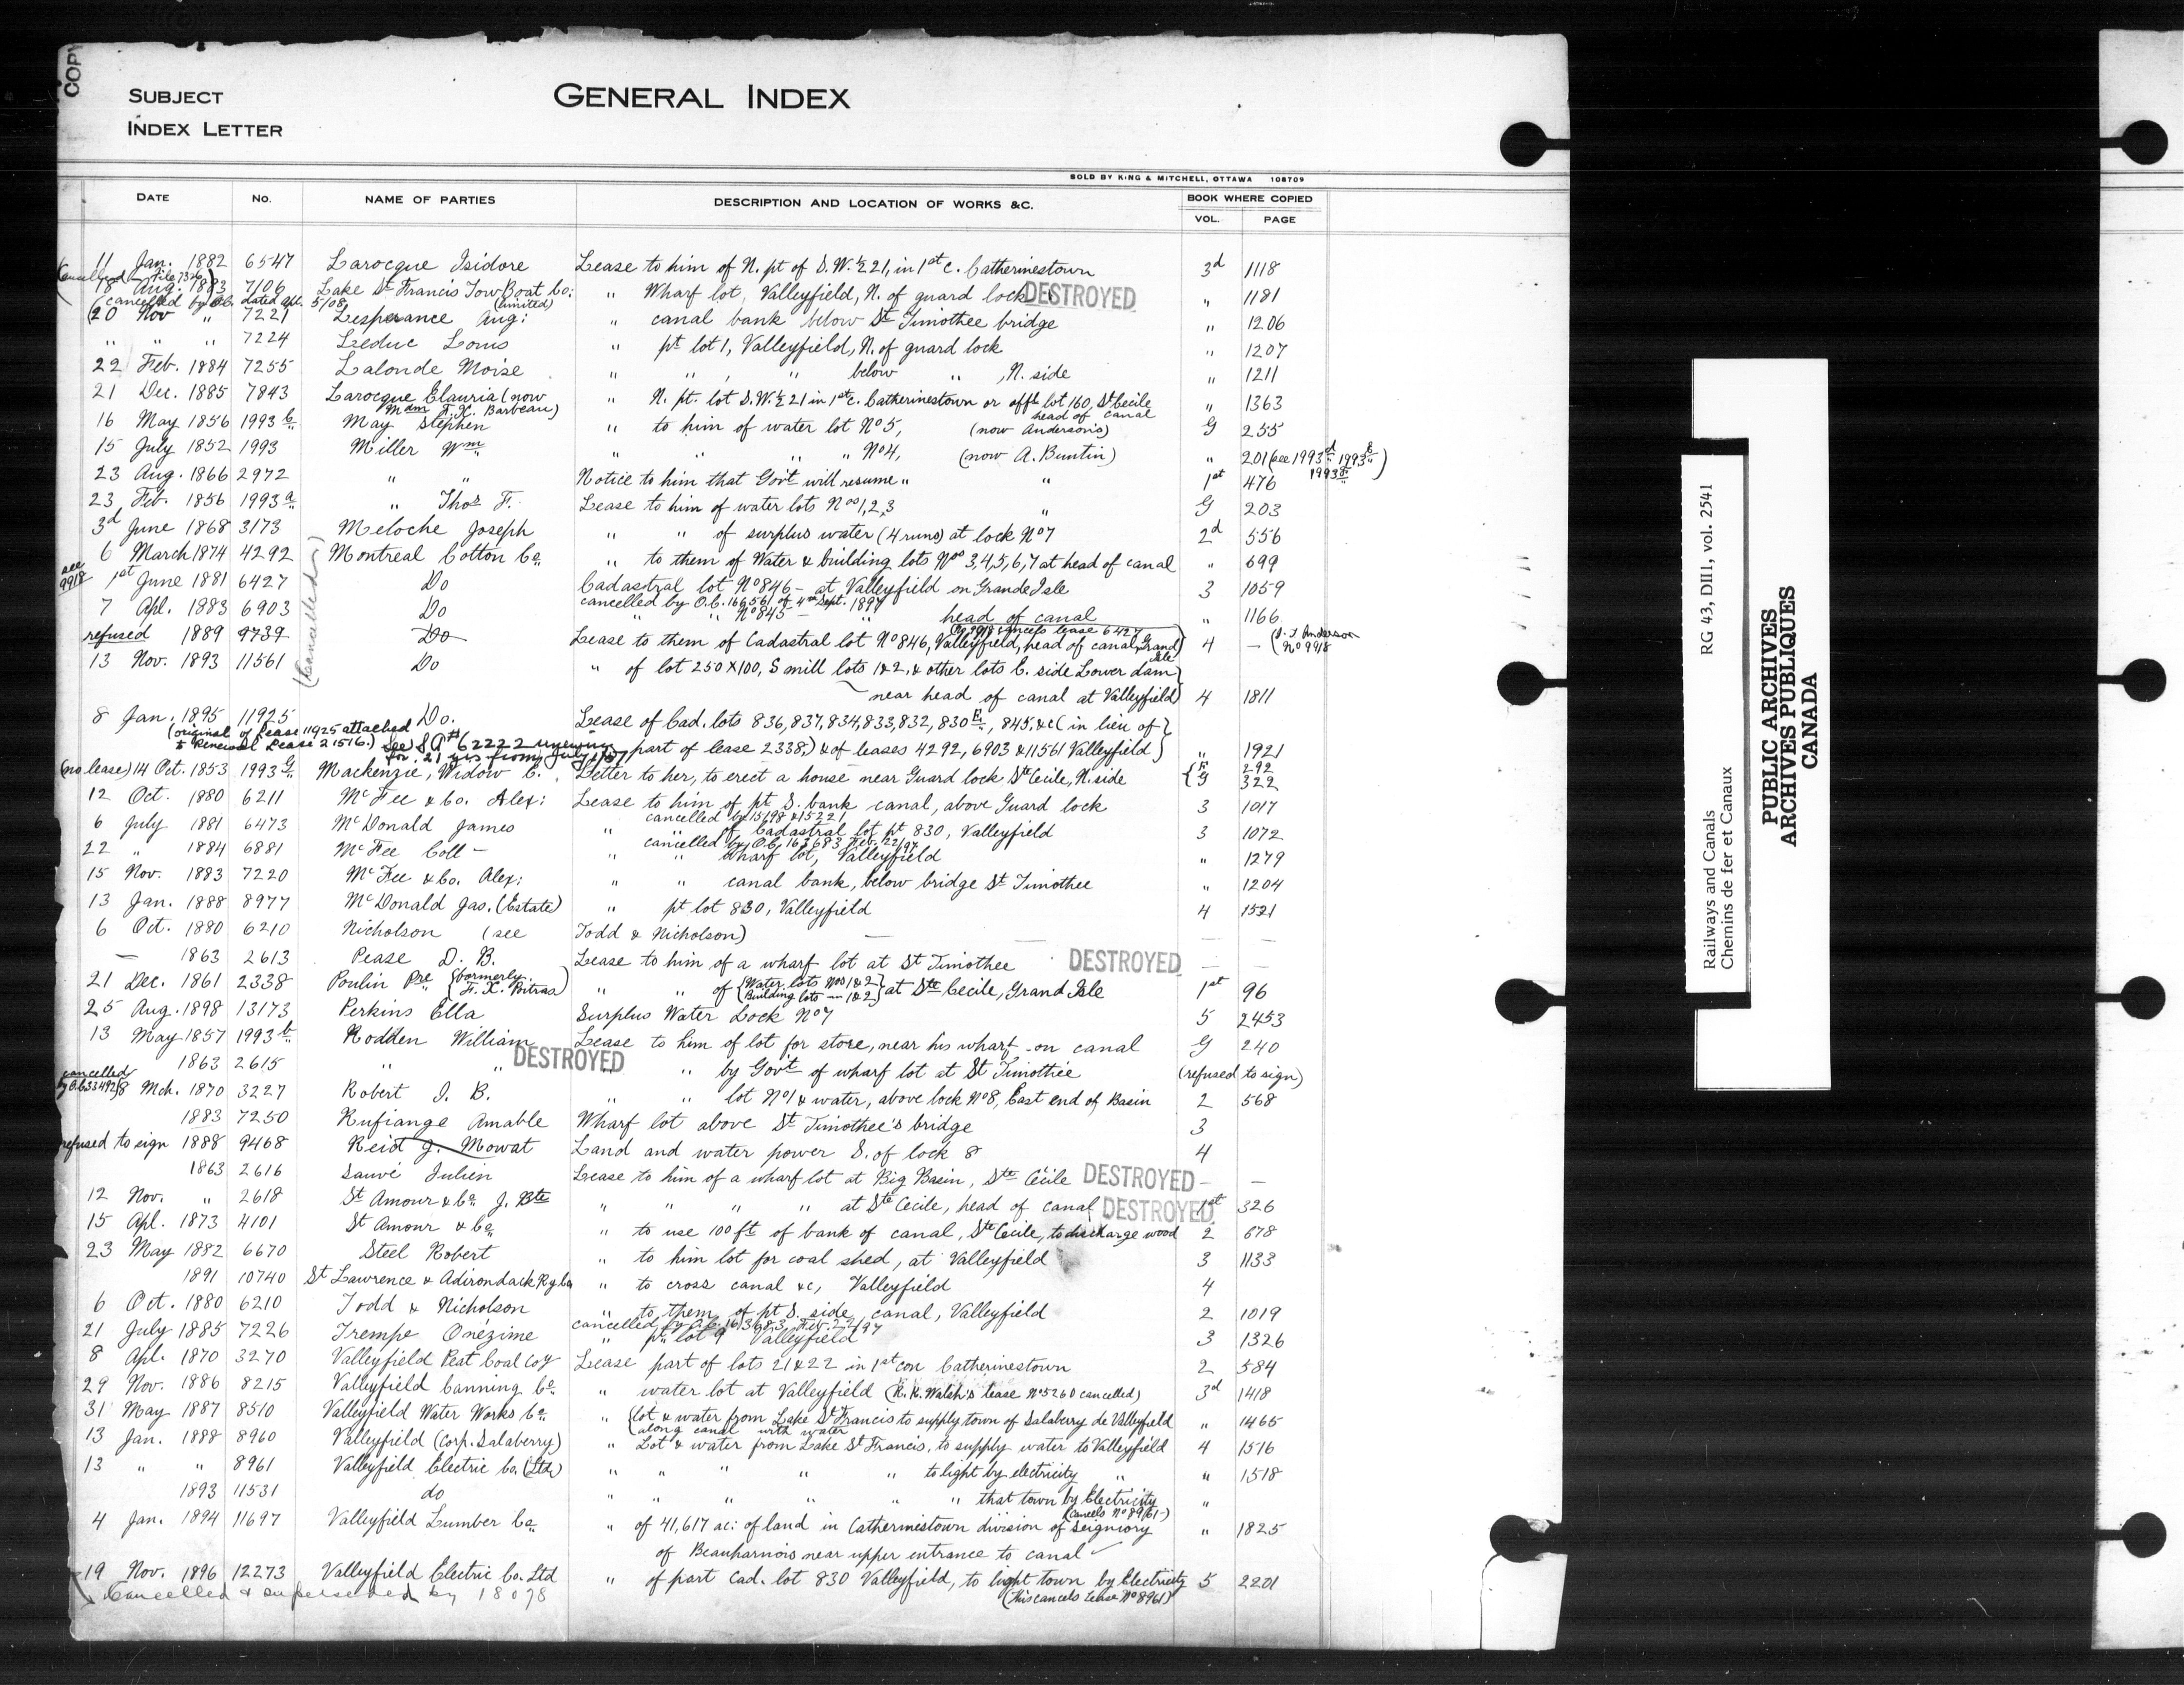 COPY
SUBJECT
GENERAL INDEX
INDEX LETTER
SOLD BY KING & MITCHELL, OTTAWA 108709
DATE No. NAME OF PARTIES DESCRIPTION AND LOCATION OF WORKS &C. BOOK WHERE COPIED
VOL. PAGE
11 Jan. 1882 6547 Larocque Isidore Lease to him of N. pt of S.W. ½ 21, in 1st c. Catherinestown 3d 1118
(Cancelled in File 7326)
18 Aug. 1883 7106 Lake St Francis Tow Boat Co: (limited) " Wharf lot, Valleyfield, N. of guard lock DESTROYED " 1181
(cancelled by dated 5/08)
20 Nov " 7221 Lesperance Aug: " canal bank below St Timothee bridge " 1206
" " " 7224 Leduc Louis " pt lot 1, Valleyfield, N. of guard lock " 1207
22 Feb. 1884 7255 Lalonde Moise " " , " below " , N. side " 1211
21 Dec. 1885 7843 Larocque Elauria (now Mdm F. X. Barbeau) " N. pt. lot S.W. ½ 21 in 1st c. Catherinestown or offl lot 160, St Cecile " 1363
16 May 1856 1993 c May Stephen " to him of water lot No 5, (now Anderson's) head of canal G 255
15 July 1852 1993 Miller Wm " " " " No 4, (now A. Buntin) " 201 (see 1993 d 1993 E 1993 F)
23 Aug. 1866 2972 " " Notice to him that Gov't will resume " " 1st 476
23 Feb. 1856 1993 a " Thos F. Lease to him of water lots Nos 1, 2, 3 " G 203
3d June 1868 3173 Meloche Joseph " " of surplus water (4 runs) at lock No 7 2d 556
6 March 1874 4292 Montreal Cotton Co. " to them of Water & building lots Nos 3,4,5,6,7 at head of canal " 699
(Cancelled)
see 9918 1st June 1881 6427 Do Cadastral lot No 846 - at Valleyfield on Grande Isle 3 1059
cancelled by O.C. 166561 of 4th Sept. 1897
7 Apl. 1883 6903 Do " " No 845 - " head of canal " 1166
refused 1889 9739 Do Lease to them of Cadastral lot No 846, Valleyfield, head of canal, Grand Isle 4 - (J. J. Anderson No 9918
(No 9918 cancels lease 6427)
13 Nov. 1893 11561 Do " of lot 250 X 100, S mill lots 1 & 2, & other lots E. side Lower dam
near head of canal at Valleyfield 4 1811
8 Jan. 1895 11925 Do. Lease of Cad. lots 836, 837, 834, 833, 832, 830 E, 845, &c (in lieu of
(original of Lease 11925 attached
to Renewal Lease 21516.) See SA #62222 renewing
for 21 yrs from
part of lease 2338,) & of leases 4292, 6903 & 11561 Valleyfield " 1921
(no lease) 14 Oct. 1853 1993 G Mackenzie, Widow C. Letter to her, to erect a house near Guard lock Ste Cecile, N. side { F 292 G 322
12 Oct. 1880 6211 McFee & Co. Alex: Lease to him of pt S. bank canal, above Guard lock 3 1017
cancelled by 15198 & 15221
6 July 1881 6473 McDonald James " " of Cadastral lot pt 830, Valleyfield 3 1072
cancelled by O.C. 163683 Feb. 22/97
22 " 1884 6881 McFee Coll - " " Wharf lot, Valleyfield " 1279
15 Nov. 1883 7220 McFee & Co. Alex: " " canal bank, below bridge St Timothee " 1204
13 Jan. 1888 8977 McDonald Jas. (Estate) " pt lot 830, Valleyfield 4 1521
6 Oct. 1880 6210 Nicholson (see Todd & Nicholson) — — — —
— 1863 2613 Pease D. B. Lease to him of a wharf lot at St Timothee DESTROYED — —
21 Dec. 1861 2338 Poulin Pre {formerly F. X. Poitras) " " of {Water lots Nos 1 & 2 Building lots — 1 & 2} at Ste Cecile, Grand Isle 1st 96
25 Aug. 1898 13173 Perkins Ella Surplus Water Lock No 7 5 2453
13 May 1857 1993 b Rodden William Lease to him of lot for store, near his wharf - on canal G 240
1863 2615 " " DESTROYED " " by Gov't of wharf lot at St Timothée (refused to sign)
cancelled by O.C. 33492 8 Mch. 1870 3227 Robert J. B. " " lot No 1 & water, above lock No 8, East end of Basin 2 568
1883 7250 Rufiange Amable Wharf lot above St Timothee's bridge 3
refused to sign 1888 9468 Reid J. Mowat Land and water power S. of lock 8 4
1863 2616 Sauvé Julien Lease to him of a wharf lot at Big Basin, Ste Cécile DESTROYED - —
12 Nov. " 2618 St Amour & Co. J. Bte " " " " at Ste Cecile, head of canal DESTROYED 1st 326
15 Apl. 1873 4101 St Amour & Co " to use 100 ft of bank of canal, Ste Cecile, to discharge wood 2 678
23 May 1882 6670 Steel Robert " to him lot for coal shed, at Valleyfield 3 1133
1891 10740 St Lawrence & Adirondack Ry Co " to cross canal &c, Valleyfield 4
6 Oct. 1880 6210 Todd & Nicholson " to them of pt S. side canal, Valleyfield 2 1019
cancelled by O.C. 163683, Feb. 22/97
21 July 1885 7226 Trempe Onézime " pt. lot 9 Valleyfield 3 1326
8 Apl. 1870 3270 Valleyfield Peat Coal Coy Lease part of lots 21 & 22 in 1st con Catherinestown 2 584
29 Nov. 1886 8215 Valleyfield Canning Co. " water lot at Valleyfield (R. K. Walsh's lease No 5260 cancelled) 3d 1418
31 May 1887 8510 Valleyfield Water Works Co. " {lot & water from Lake St Francis to supply town of Salaberry de Valleyfield " 1465
along canal with water
13 Jan. 1888 8960 Valleyfield (Corp. Salaberry) " Lot & water from Lake St Francis, to supply water to Valleyfield 4 1516
13 " " 8961 Valleyfield Electric Co. (Ltd) " " " " " to light by electricity " " 1518
1893 11531 do " " " " " " that town by Electricity "
(Cancels No 8961-)
4 Jan. 1894 11697 Valleyfield Lumber Co. " of 41,617 ac: of land in Catherinestown division of Seigniory " 1825
of Beauharnois near upper entrance to canal
19 Nov. 1896 12273 Valleyfield Electric Co. Ltd " of part Cad. lot 830 Valleyfield, to light town by Electricity 5 2201
Cancelled & superseded by 18078 (This cancels Lease No 8961)
Railways and Canals RG 43, DII1, vol. 2541
Chemins de fer et Canaux
PUBLIC ARCHIVES
ARCHIVES PUBLIQUES
CANADA